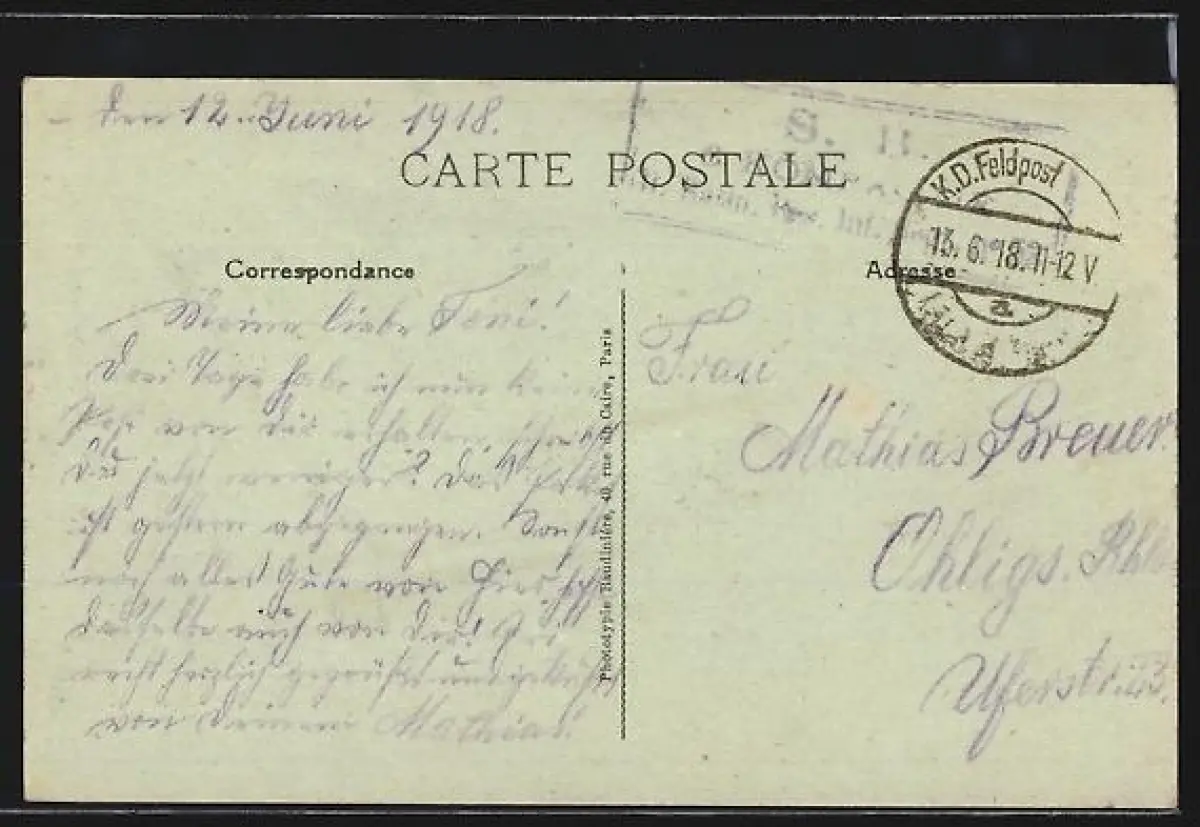 den 12. Juni 1918.
CARTE POSTALE
S. B.
Inf.
K.D. Feldpost
13.6.18. 11-12 V
a
Correspondance
Adresse
Meine liebe Toni!
Drei Tage habe ich nun keine
Post von dir erhalten, schreibst
Du jetzt weniger? Das Paket
ist gestern abgegangen. Sonst
noch alles Gute von hier, hoffe
dasselbe auch von Dir! Sei
recht herzlich gegrüßt und geküßt
von Deinem Mathias!
Phototypie Baudinière, 40, rue du Caire, Paris
Frau
Mathias Breuer
Ohligs. Rhld
Uferstr. 23.